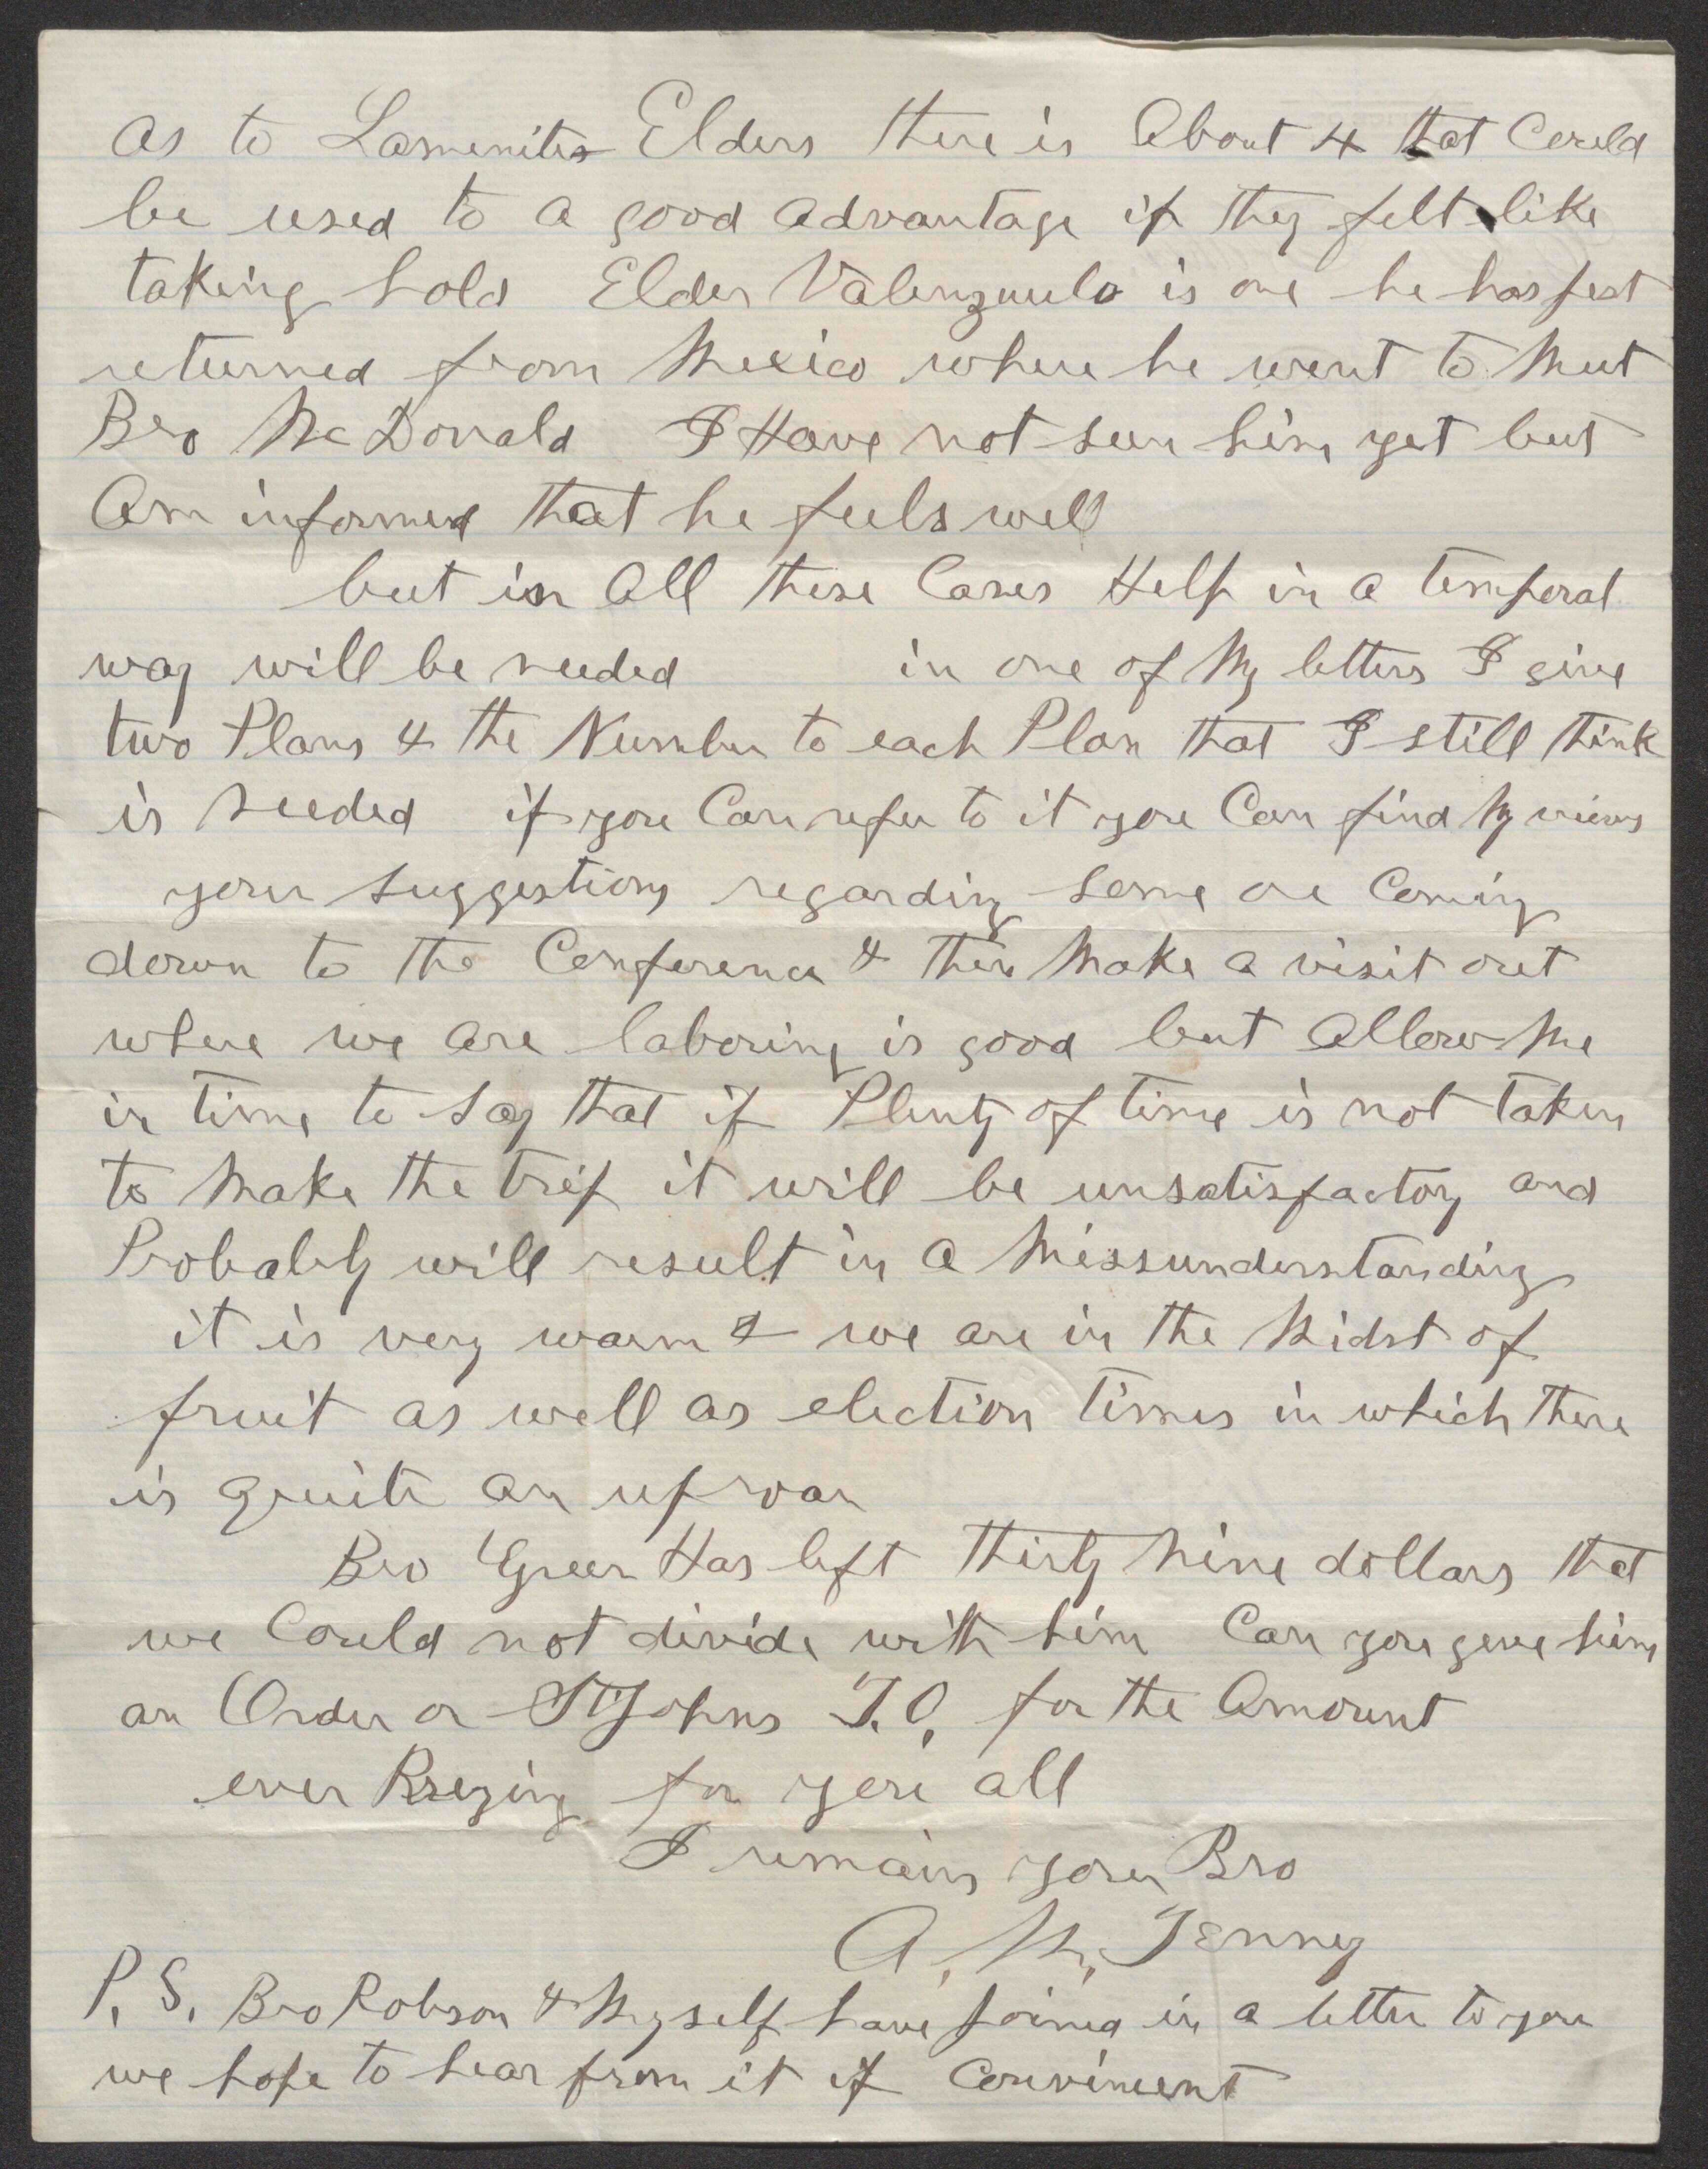 As to Lamenites Elders there is About 4 that Could
be used to a good advantage if they felt like
taking hold Elder Valenzuula is one he has just
returned from Mexico where he went to Meet
Bro McDonald I Have not seen him yet but
Am informed that he feels well
but in All these Cases Help in a temporal
way will be needed in one of My letters I give
two Plans & the Number to each Plan that I still think
is needed if you Can refer to it you Can find My views
your suggestions regarding some one Coming
down to the Conference & then Make a visit out
where we are laboring is good but Allow Me
in time to say that if Plenty of time is not taken
to Make the trip it will be unsatisfactory and
Probably will result in a Missunderstanding
it is very warm & we are in the Midst of
fruit as well as election times in which there
is quite an uproar
Bro Greer Has left thirty Nine dollars that
we Could not divide with him Can you geve him
an Order on St Johns T.O. for the Amount
ever Preying for you all
I remain your Bro
A. M. Tenney
P.S. Bro Robson & Myself have joined in a letter to you
we hope to hear from it if Convinient